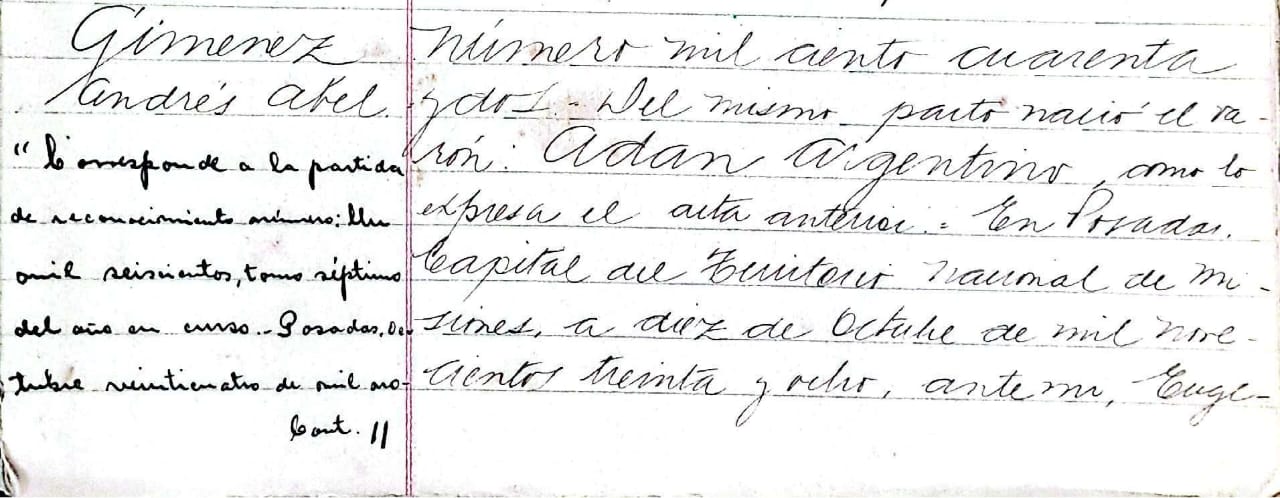 Gimenez
Andrés Abel.
"Corresponde a la partida
de reconocimiento número: Un
mil seiscientos, tomo séptimo
del año en curso.- Posadas, Oc-
tubre veinticuatro de mil no-
Cont. //
Número mil ciento cuarenta
y dos.- Del mismo parto nació el va-
rón: Adan Argentino, como lo
expresa el acta anterior.= En Posadas,
Capital del Territorio Nacional de Mi-
siones, a diez de Octubre de mil nove-
cientos treinta y ocho, ante mi, Euge-